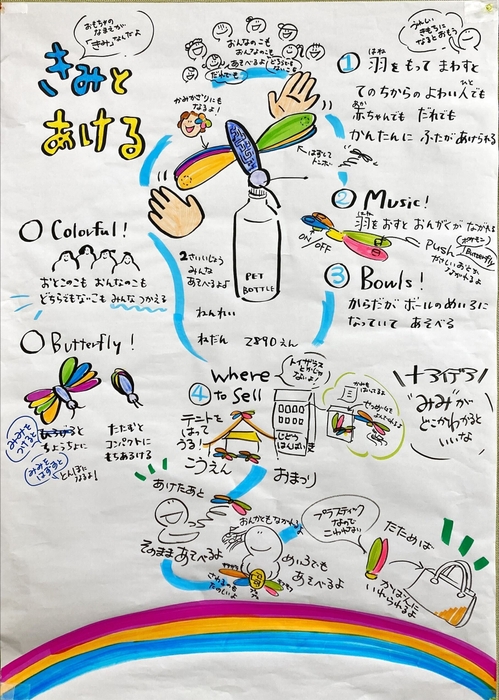 おもちゃの
なまえが
「きみ」なんだよ
きみと
あける
おんなのこも
おんなのこも
あそべるよ!どちらでも
ないこも
だれでも
うれしい
きもちに
なるとおもう
かみかざりにも
なるよ!
はずして
トンボへ
PET
BOTTLE
① 羽をもって まわすと
はね
てのちからの よわい人でも
ひと
赤ちゃんでも だれでも
あか
かんたんに ふたがあけられる
② Music!
羽をおすと おんがくが ながれる
はね
ON/OFF
Push
③ Bowls!
からだが ボールのめいろに
なっていて あそべる
○ Colorful!
おとこのこも おんなのこも
どちらでもないこも みんな つかえる
○ Butterfly!
みみを
つけると
ちょうちょに
みみを
はずすと
とんぼに
なるよ!
たたむと
コンパクトに
もちあるける
2さいいじょう
みんな
あそべるよ♪
ねんれい
ねだん 2890えん
④ Where
to Sell
トイザラス
とかじゃ
ないよ!
テントを
はって
うる!
こうえん
じどう
はんばいき
おまつり
+アイデア
"みみ"が
どこかわかると
いいな
あけたあと
そのまま あそべるよ
おんがくもながれるよ
めいろでも
あそべるよ
さわるのも
たのしいよ
プラスティック
なので
こわれない
たためば
かばんに
いれられるよ